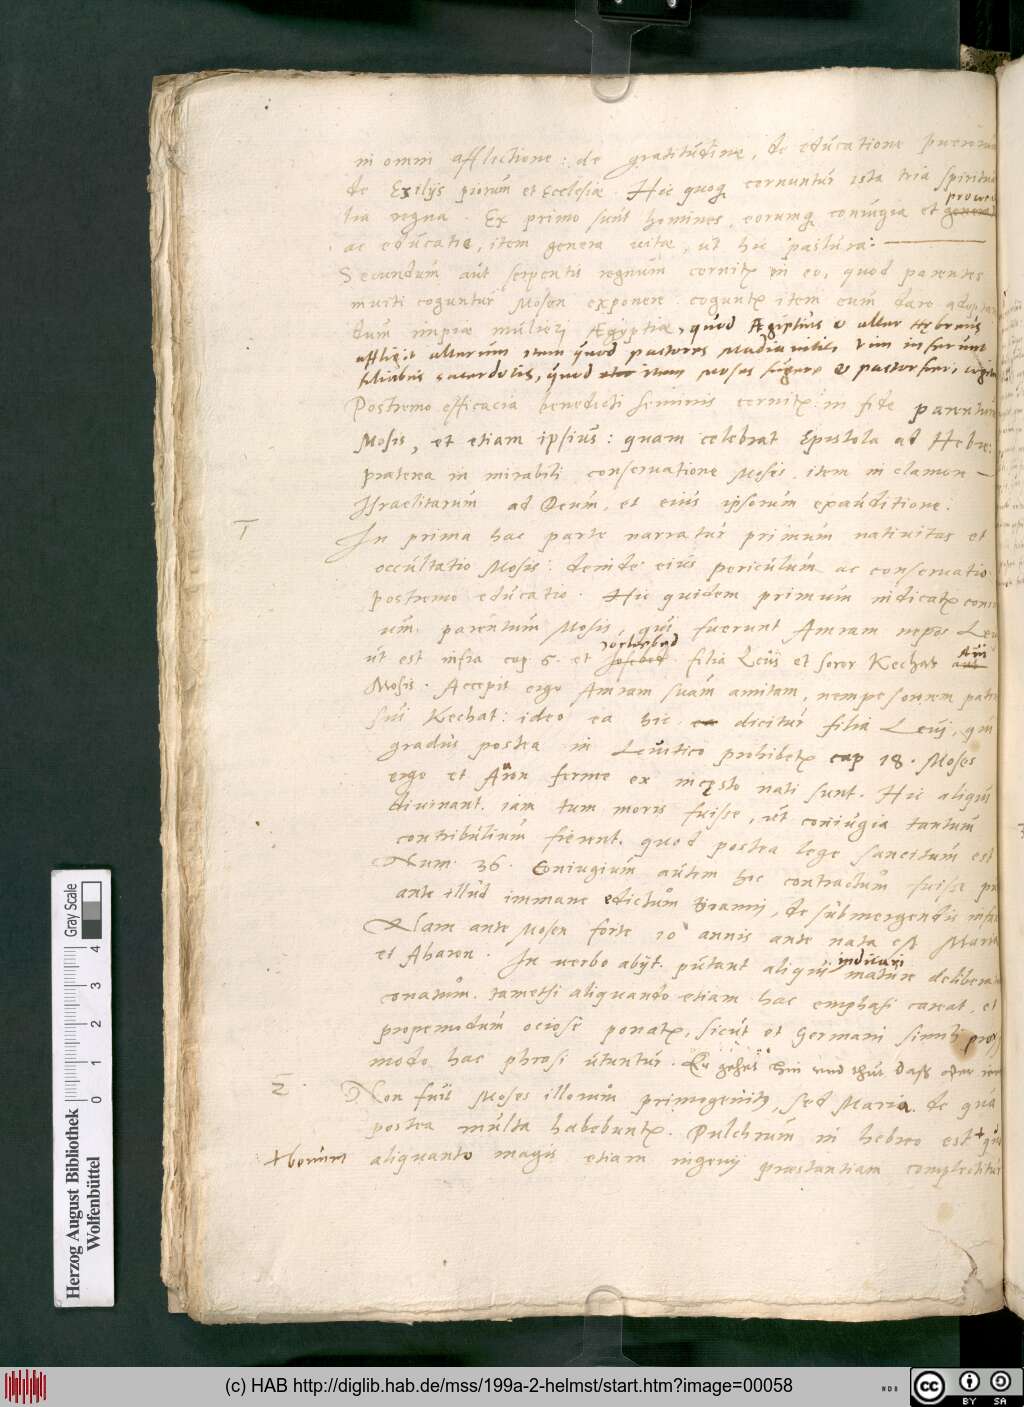 in omni afflictione: de gratitudine, de educatione puerorum
de Exilijs piorum et Ecclesiae. Hic quoq cernuntur ista tria spiritua
lia regna. Ex primo sunt homines, eorumq coniugia et
ac educatio, item genera vitae, ut hic pastura:
Secundum aut serpentis regnum cernitr in eo, quod parentes
inviti coguntur Mosen exponere. coguntr item eum dare adoptan
dum impiae mulieri Aegyptiae, quod Aegiptius & alter Hebraeus
affligit alterum item quod pastores Madianitici vim inferunt
filiabus sacerdotis, quod item Moses fugere &
Postremo efficacia benedicti seminis cernitr in fide parentum
Mosis, et etiam ipsius: quam celebrat Epistola ad Hebre:
praterea in mirabili conservatione Mosis, item in clamore
Israelitarum ad Deum, et eius ipsorum exauditione.
1
In prima hac parte narratur primum nativitas et
occultatio Mosis: deinde eius periculum ac conservatio
postremo educatio. Hic quidem primum indicatr coniu
um parentum Mosis, qui fuerunt Amram nepos Levi
ut est infra cap 6. et filia Levi et soror Kechat Avi
Mosis. Accepit ergo Amram suam amitam, nempe sororem patris
sui Kechat: ideo ea hic dicitur filia Levi, qui
gradus postea in Levitico prohibetr cap 18. Moses
ergo et Aaron ferme ex incesto nati sunt. Hic aliqui
divinant. iam tum moris fuisse, ut coniugia tantum
contribulium fierent. quod postea lege sancitum est
Num. 36. Coniugium autem hoc contractum fuisse
ante illud immane edictum tiranni, de submergendis
Nam ante Mosen forte 10 annis ante nata est Maria
et Aharon. In verbo abijt. putant aliqui indicari mature delibera
conatum. tametsi aliquando etiam hac emphasi careat, et
propemodum ociose ponatr, sicut et Germani simili
modo hac phrasi utuntur. Er gehet hin und thut daß oder
2
Non fuit Moses illorum primogenitus, sed Maria de qua
postea multa habebuntr. Pulchrum in hebreo est + qu
+ bonum aliquanto magis etiam ingenij praestantiam complectitur
Herzog August Bibliothek
Wolfenbüttel
Gray Scale
0 1 2 3 4
(c) HAB http://diglib.hab.de/mss/199a-2-helmst/start.htm?image=00058
cc BY SA